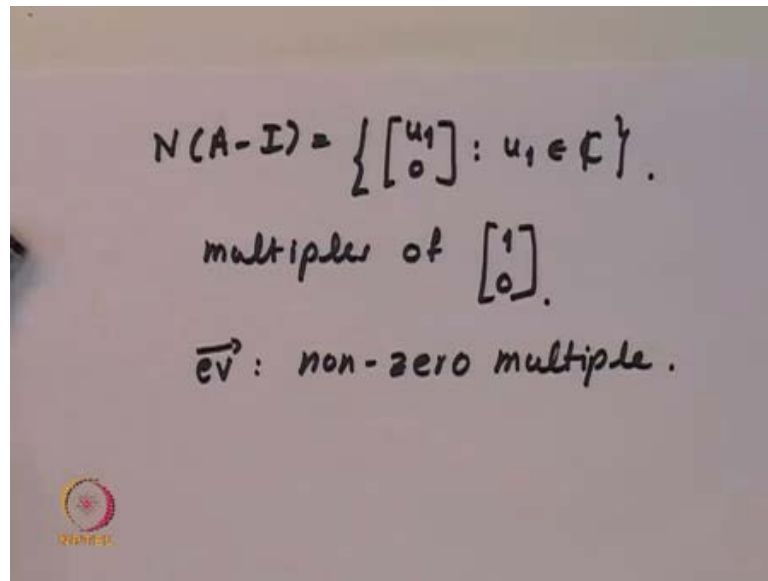 N(A-I) = { [u₁ 0] : u₁ ∈ ℂ }.
multiples of [1 0].
ev⃗ : non-zero multiple.
NPTEL